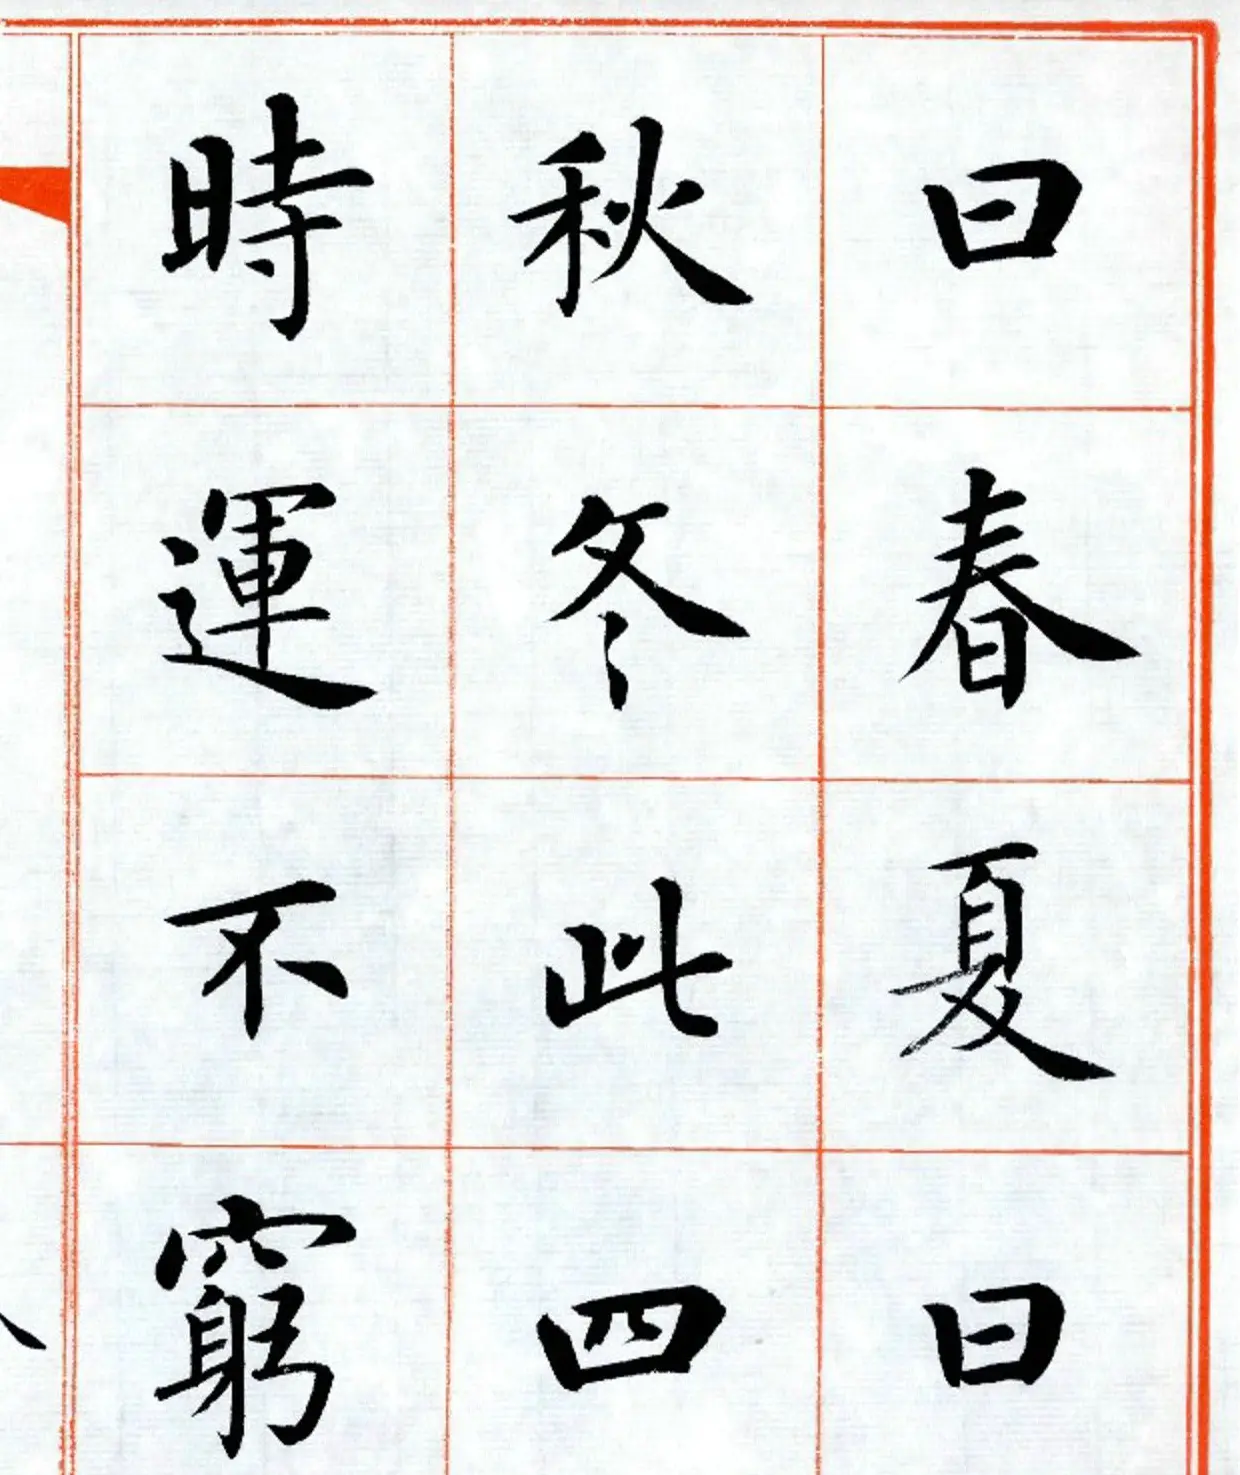 曰春夏曰
秋冬此四
時運不窮